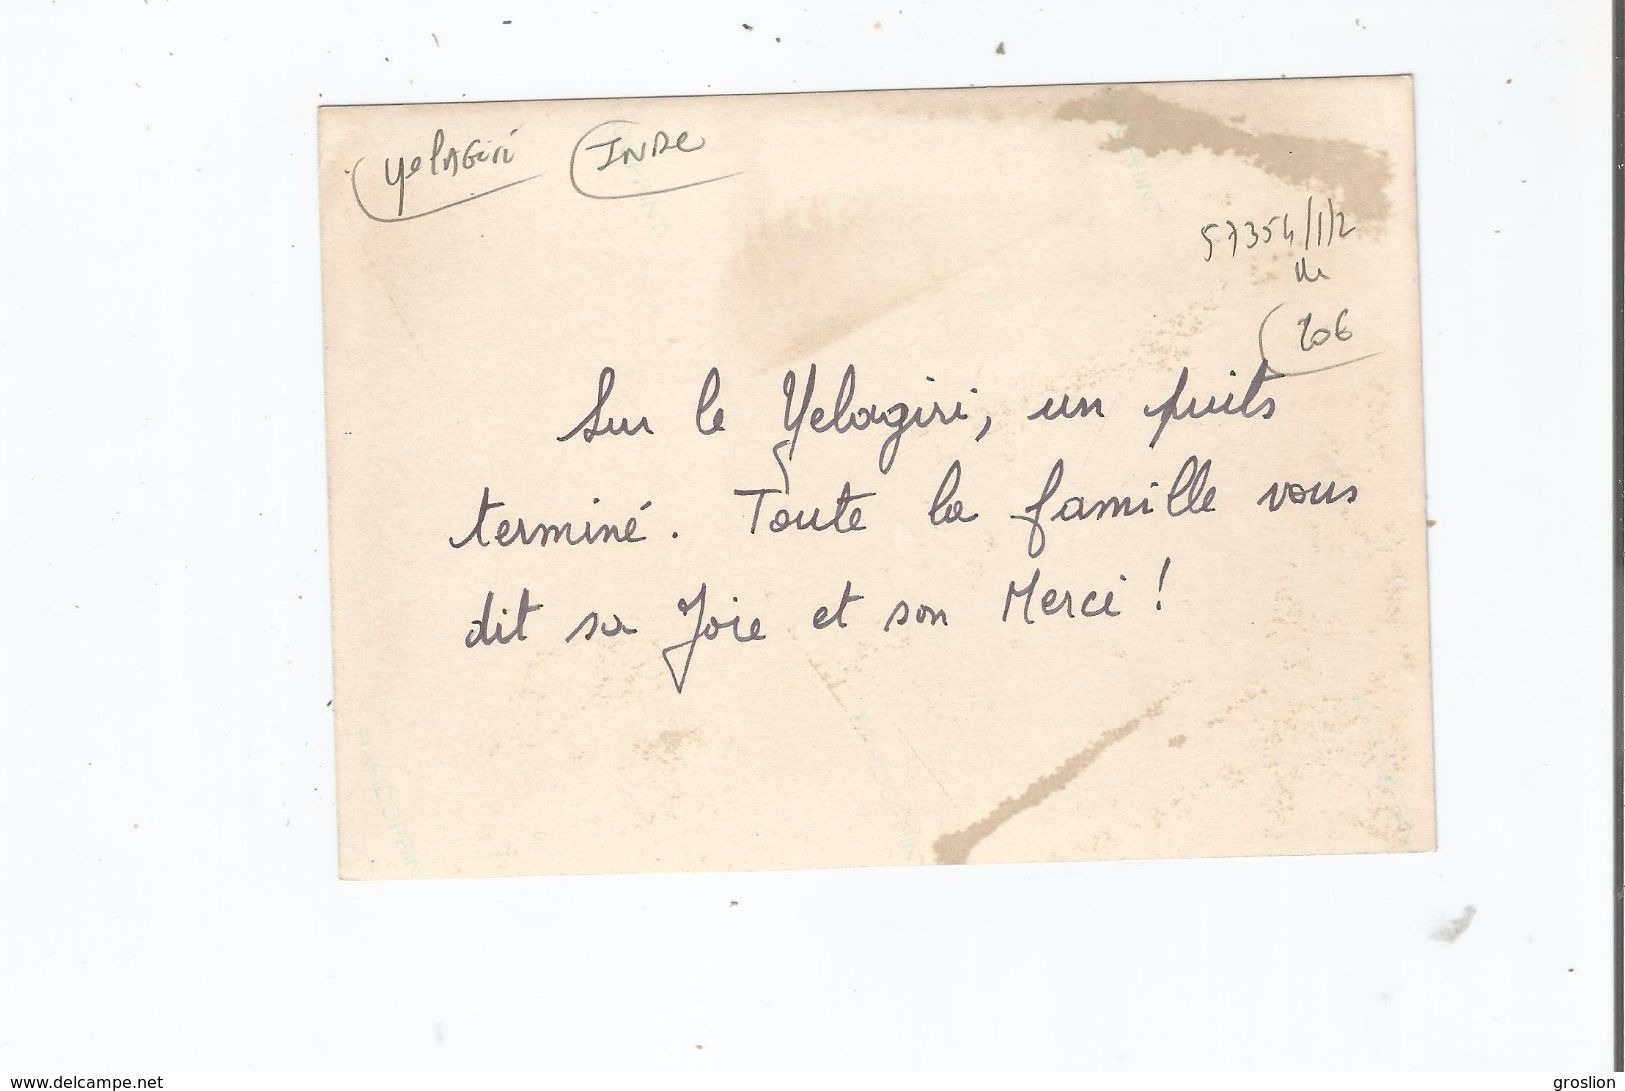 YelAGiri INDe
57354/1/2
Sur le Yelagiri, un puits
terminé. Toute la famille vous
dit sa Joie et son Merci !
RAPIDOPRINT
www.delcampe.net
groslion